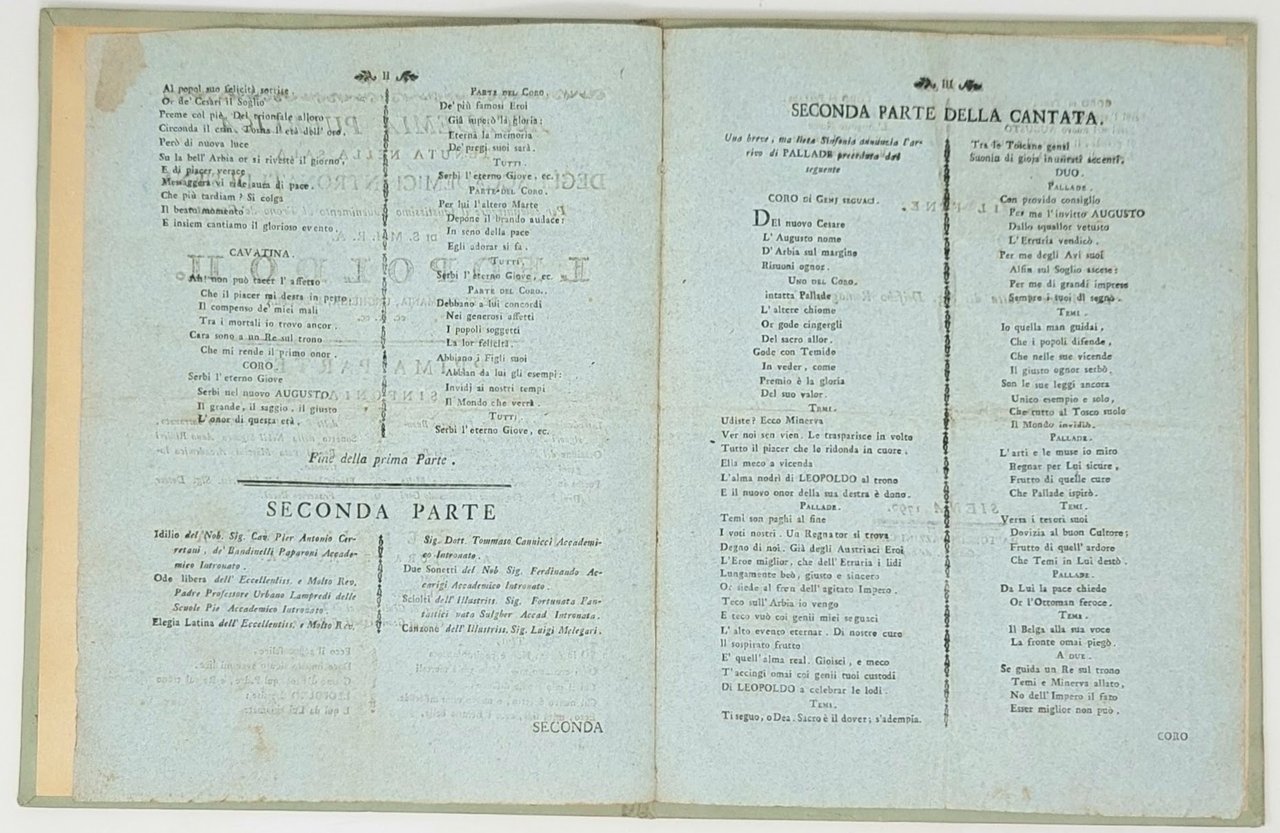 II
Al popol suo felicità sortise.
Or de' Cesari il Soglio
Preme col piè. Del trionfale alloro
Circonda il crin. Torna il età dell' oro.
Però di nuova luce
Su la bell' Arbia or si rivestè il giorno,
E di piacer verace
Messaggera vi ride aura di pace.
Che più tardiam? Si colga
Il beato momento
E insiem cantiamo il glorioso evento.
CAVATINA.
Ah! non può tacer l' affetto
Che il piacer mi desta in petto:
Il compenso de' miei mali
Tra i mortali io trovo ancor.
Cara sono a un Re sul trono
Che mi rende il primo onor.
CORO.
Serbi l' eterno Giove
Serbi nel nuovo AUGUSTO
Il grande, il saggio, il giusto
L' onor di questa età.
PARTE DEL CORO.
De' più famosi Eroi
Già superò la gloria:
Eterna la memoria
De' pregi suoi sarà.
TUTTI.
Serbi l' eterno Giove, ec.
PARTE DEL CORO.
Per lui l' altero Marte
Depone il brando audace:
In seno della pace
Egli adorar si fa.
TUTTI.
Serbi l' eterno Giove, ec.
PARTE DEL CORO.
Debbano a lui concordi
Nei generosi affetti
I popoli soggetti
La lor felicità.
Abbiano i Figli suoi
Abbian da lui gli esempi:
Invidj ai nostri tempi
Il Mondo che verrà.
TUTTI.
Serbi l' eterno Giove, ec.
Fine della prima Parte.
SECONDA PARTE
Idilio del Nob. Sig. Cav. Pier Antonio Cer-
retani, de' Bandinelli Paparoni Accade-
mico Intronato.
Ode libera dell' Eccellentiss. e Molto Rev.
Padre Professore Urbano Lampredi delle
Scuole Pie Accademico Intronato.
Elegia Latina dell' Eccellentiss. e Molto Rev.
Sig. Dott. Tommaso Cannicci Accademi-
co Intronato.
Due Sonetti del Nob Sig. Ferdinando Ac-
carigi Accademico Intronato.
Sciolti dell' Illustriss. Sig. Fortunata Fan-
tastici nata Sulgher Accad Intronata.
Canzone dell' Illustriss. Sig. Luigi Melegari.
SECONDA
III
SECONDA PARTE DELLA CANTATA.
Una breve, ma lieta Sinfonia annunzia l' ar-
rivo di PALLADE preceduta dal
seguente
CORO di GENJ SEGUACI.
DEl nuovo Cesare
L' Augusto nome
D' Arbia sul margine
Risuoni ognor.
UNO DEL CORO.
intatta Pallade
L' altere chiome
Or gode cingergli
Del sacro allor.
Gode con Temide
In veder, come
Premio é la gloria
Del suo valor.
TEMI.
Udiste? Ecco Minerva
Ver noi sen vien. Le trasparisce in volto
Tutto il piacer che le ridonda in cuore.
Ella meco a vicenda
L' alma nodrì di LEOPOLDO al trono
E il nuovo onor della sua destra è dono.
PALLADE.
Temi son paghi al fine
I voti nostri. Un Regnator si trova
Degno di noi. Già degli Austriaci Eroi
L' Eroe miglior, che dell' Etruria i lidi
Lungamente beò, giusto e sincero
Or siede al fren dell' agitato Impero.
Teco sull' Arbia io vengo
E teco vuò coi genii miei seguaci
L' alto evento eternar. Di nostre cure
Il sospirato frutto
E' quell' alma real. Gioisci, e meco
T' accingi omai coi genii tuoi custodi
Di LEOPOLDO a celebrar le lodi.
TEMI.
Ti seguo, o Dea. Sacro è il dover; s' adempia.
Tra le Toscane genti
Suonin di gioja inusitati accenti.
DUO.
PALLADE.
Con provido consiglio
Per me l' invitto AUGUSTO
Dallo squallor vetusto
L' Etruria vendicò.
Per me degli Avi suoi
Alfin sul Soglio ascese:
Per me di grandi imprese
Sempre i suoi dì segnò.
TEMI.
Io quella man guidai,
Che i popoli difende,
Che nelle sue vicende
Il giusto ognor serbò.
Son le sue leggi ancora
Unico esempio e solo,
Che tutto al Tosco suolo
Il Mondo invidiò.
PALLADE.
L' arti e le muse io miro
Regnar per Lui sicure,
Frutto di quelle cure
Che Pallade ispirò.
TEMI.
Versa i tesori suoi
Dovizia al buon Cultore;
Frutto di quell' ardore
Che Temi in Lui destò.
PALLADE.
Da Lui la pace chiede
Or l' Ottoman feroce.
TEMI.
Il Belga alla sua voce
La fronte omai piegò.
A DUE.
Se guida un Re sul trono
Temi e Minerva allato,
No dell' Impero il fato
Esser miglior non può.
CORO